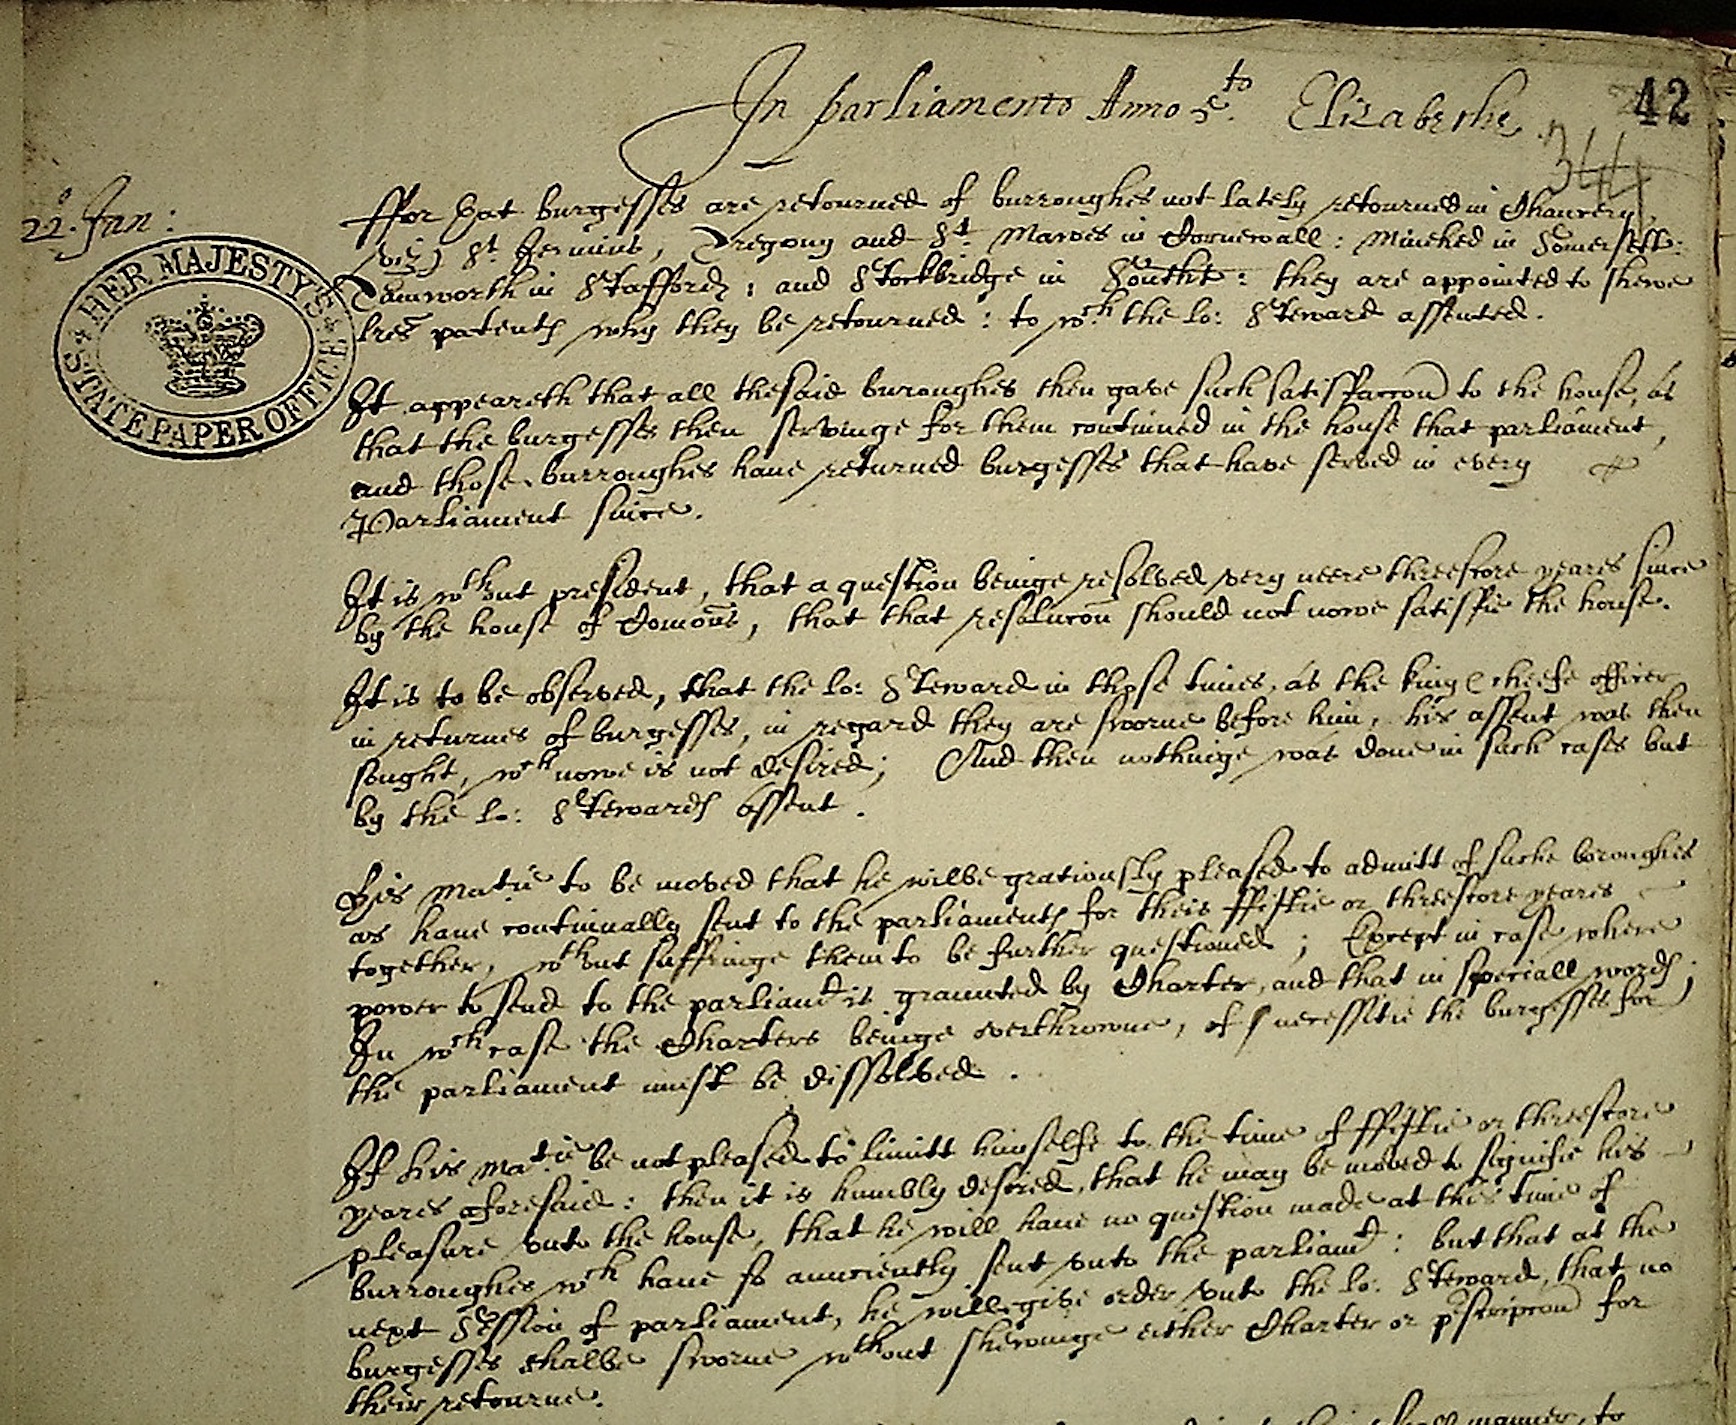 In parliamento Anno 5to. Elizabethe
42
344
22o. Jan:
HER MAJESTY'S
STATE PAPER OFFICE
ffor that burgesses are retourned of burroughes not lately retourned in Chauncery,
viz) St. Jermins, Tregony and St. Mawes in Cornewall: Minehed in Somersett:
Tamworth in Stafford; and Stockbridge in Southt: they are appointed to shewe
lres patents why they be retourned: to wch. the lo: Steward assented.
It appeareth that all thesaid buroughes then gave such satisfaccon to the house, as
that the burgesses then servinge for them continued in the house that parliament,
and those burroughes haue returned burgesses that have served in every
Parliament since.
It is wthout president, that a question beinge resolved very neere threescore yeares since
by the house of Comons, that that resolucon should not nowe satisfie the house.
It is to be observed, that the lo: Steward in those times, as the kings cheefe officer
in returnes of burgesses, in regard they are sworne before him, his assent was then
sought, wch nowe is not desired; And then nothinge was done in such cases but
by the lo: Stewards assent.
His Matie to be moved that he wilbe gratiously pleased to admitt of suche boroughes
as haue continually sent to the parliaments for theis ffiftie or threescore yeares
together, wthout suffringe them to be further questioned; Except in case where
power to send to the parliamt is graunted by Charter, and that in speciall words;
In wch case the Charters beinge overthrowne, of necessitie the burgesses for
the parliament must be dissolved.
If his Matie be not pleased to limitt himselfe to the time of ffiftie or threescore
yeares aforesaid: then it is humbly desired, that he may be moved to signifie his
pleasure vnto the house, that he will haue no question made at this time of
burroughes wch haue so aunciently sent vnto the parliamt: but that at the
next Session of parliament, he will give order vnto the lo: Steward, that no
burgesses shalbe sworne wthout shewinge either Charter or pscripcon for
their retourne.
manner, to